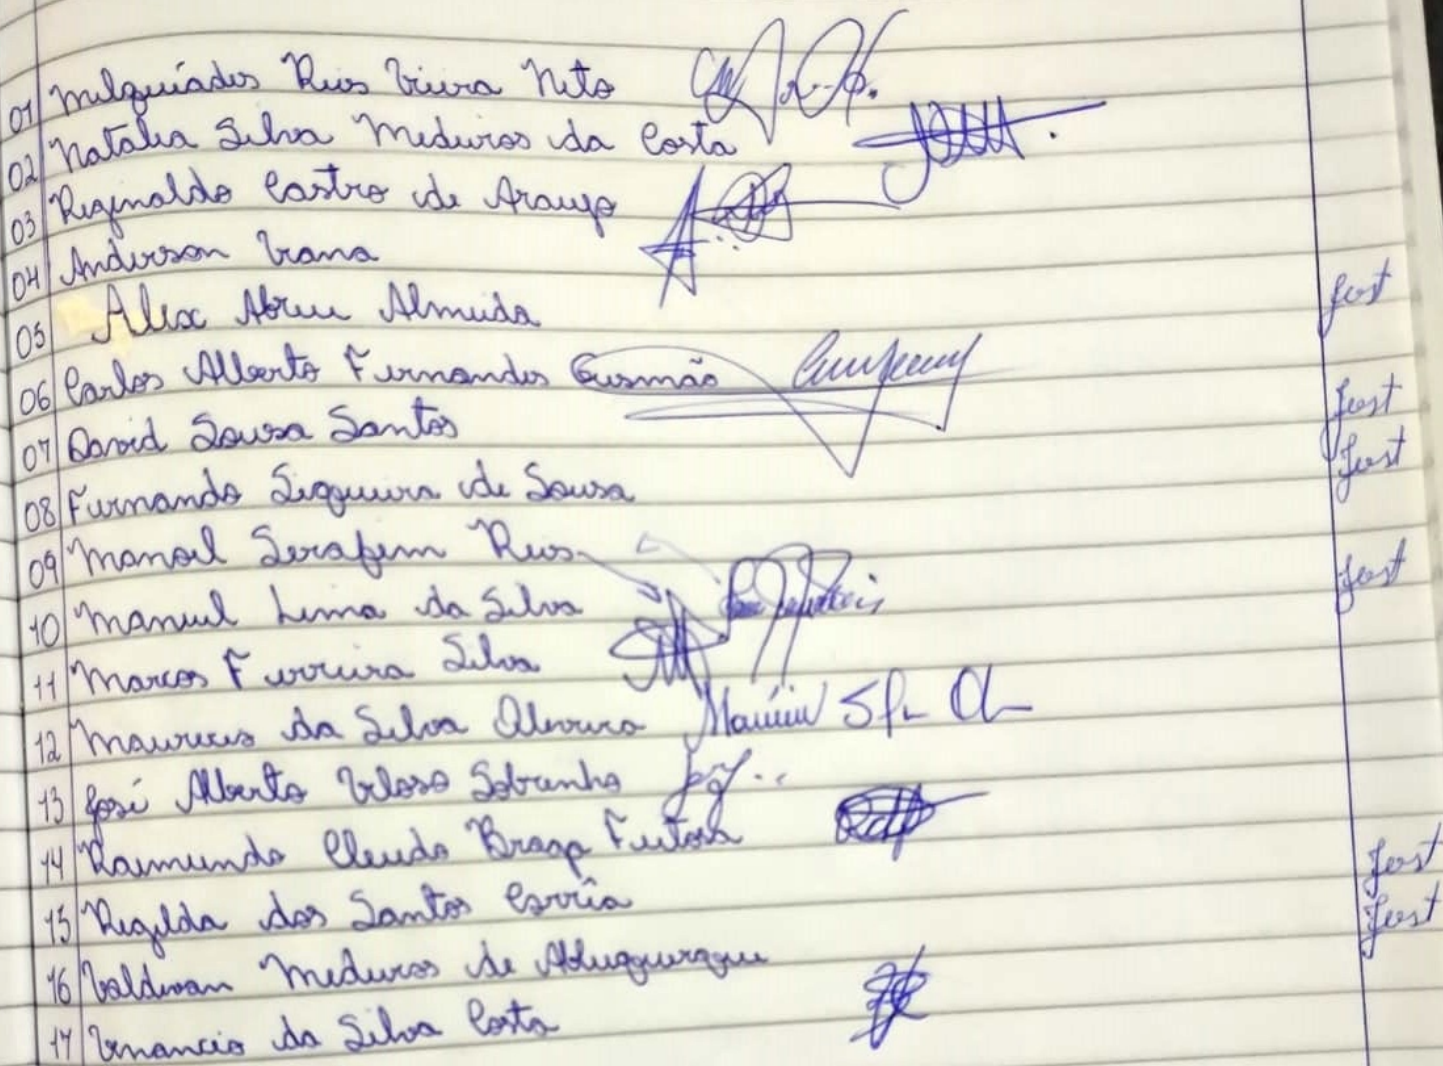 01 Melquiades Rios Vieira Neto
02 Natalia Silva Medeiros da Costa
03 Reginaldo Castro de Araujo
04 Anderson Viana
05 Alex Abreu Almeida Just
06 Carlos Alberto Fernandes Gusmão
07 David Sousa Santos Just
08 Fernando Siqueira de Sousa Just
09 Manoel Serafim Reis
10 Manuel Lima da Silva Just
11 Marcos Ferreira Silva
12 da Silva Oliveira
13 José Alberto Veloso Sobrinho
14 Raimundo Braga Feitosa
15 Regilda dos Santos Corrêa Just
16 Valdivan Medeiros de Albuquerque Just
17 Venancio da Silva Costa